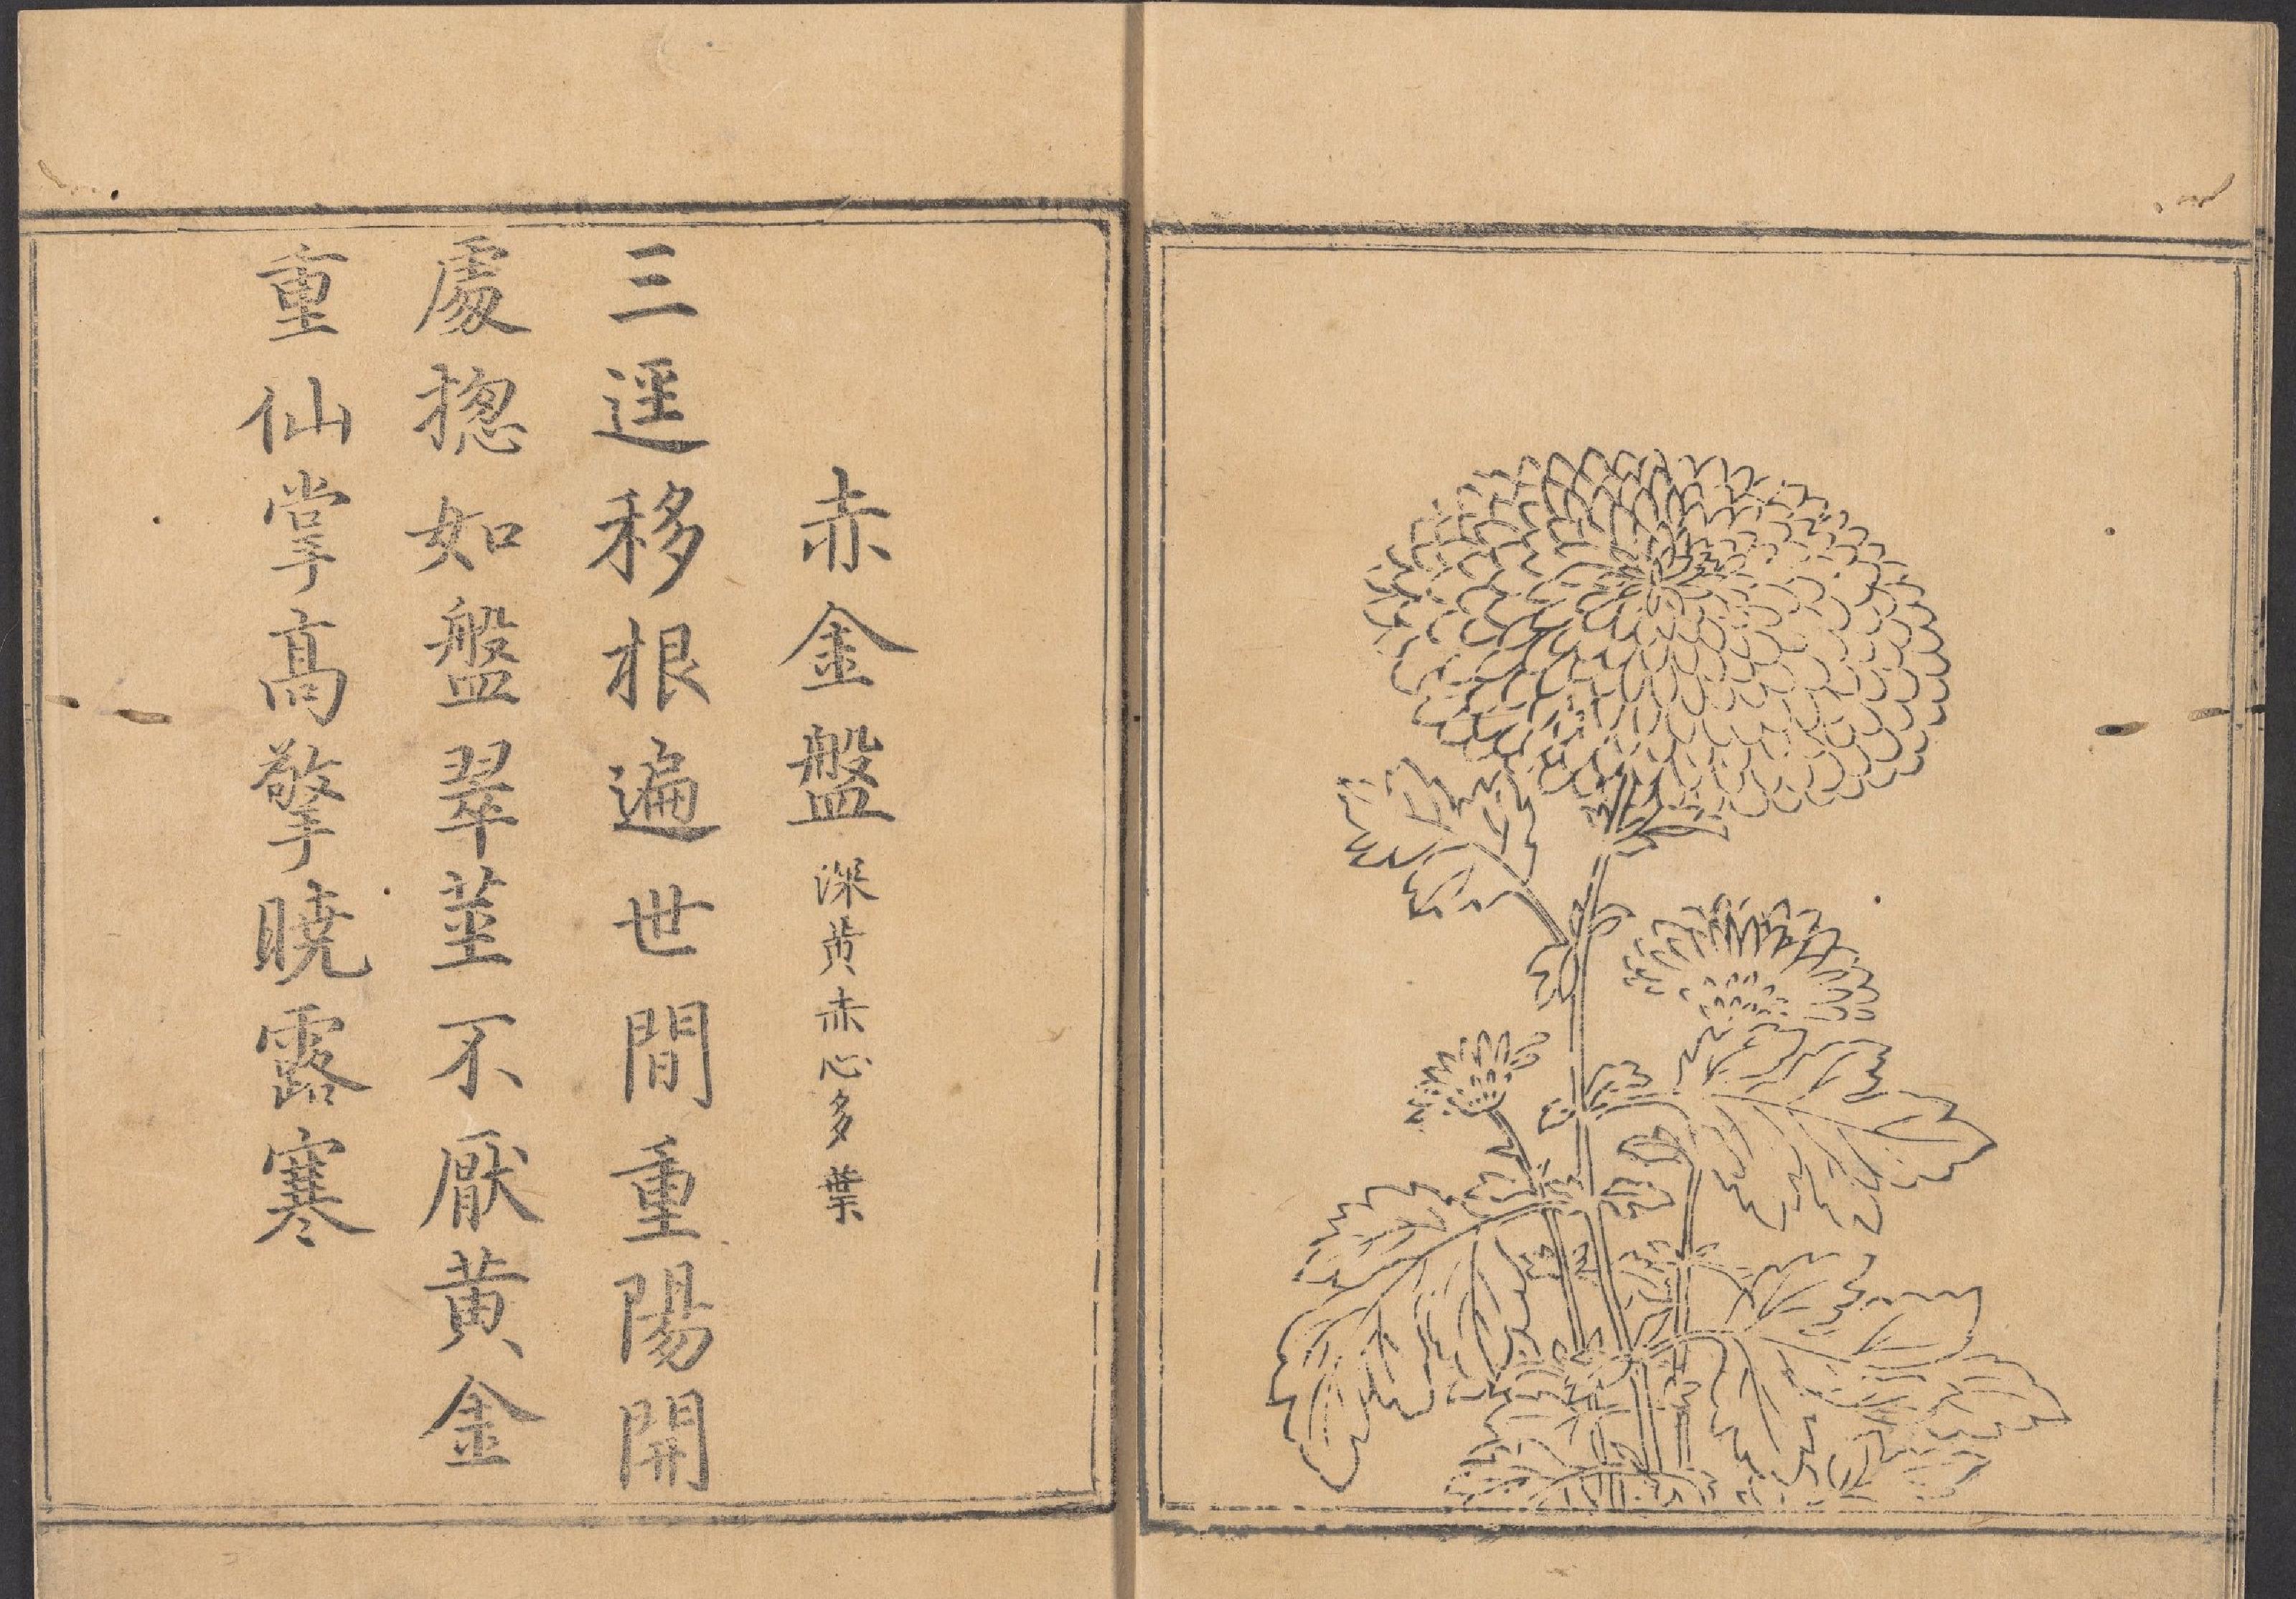 赤金盤 深黄赤心多葉
三逕移根遍世間重陽開
處揔如盤翠莖不厭黄金
重仙掌髙擎曉露寒